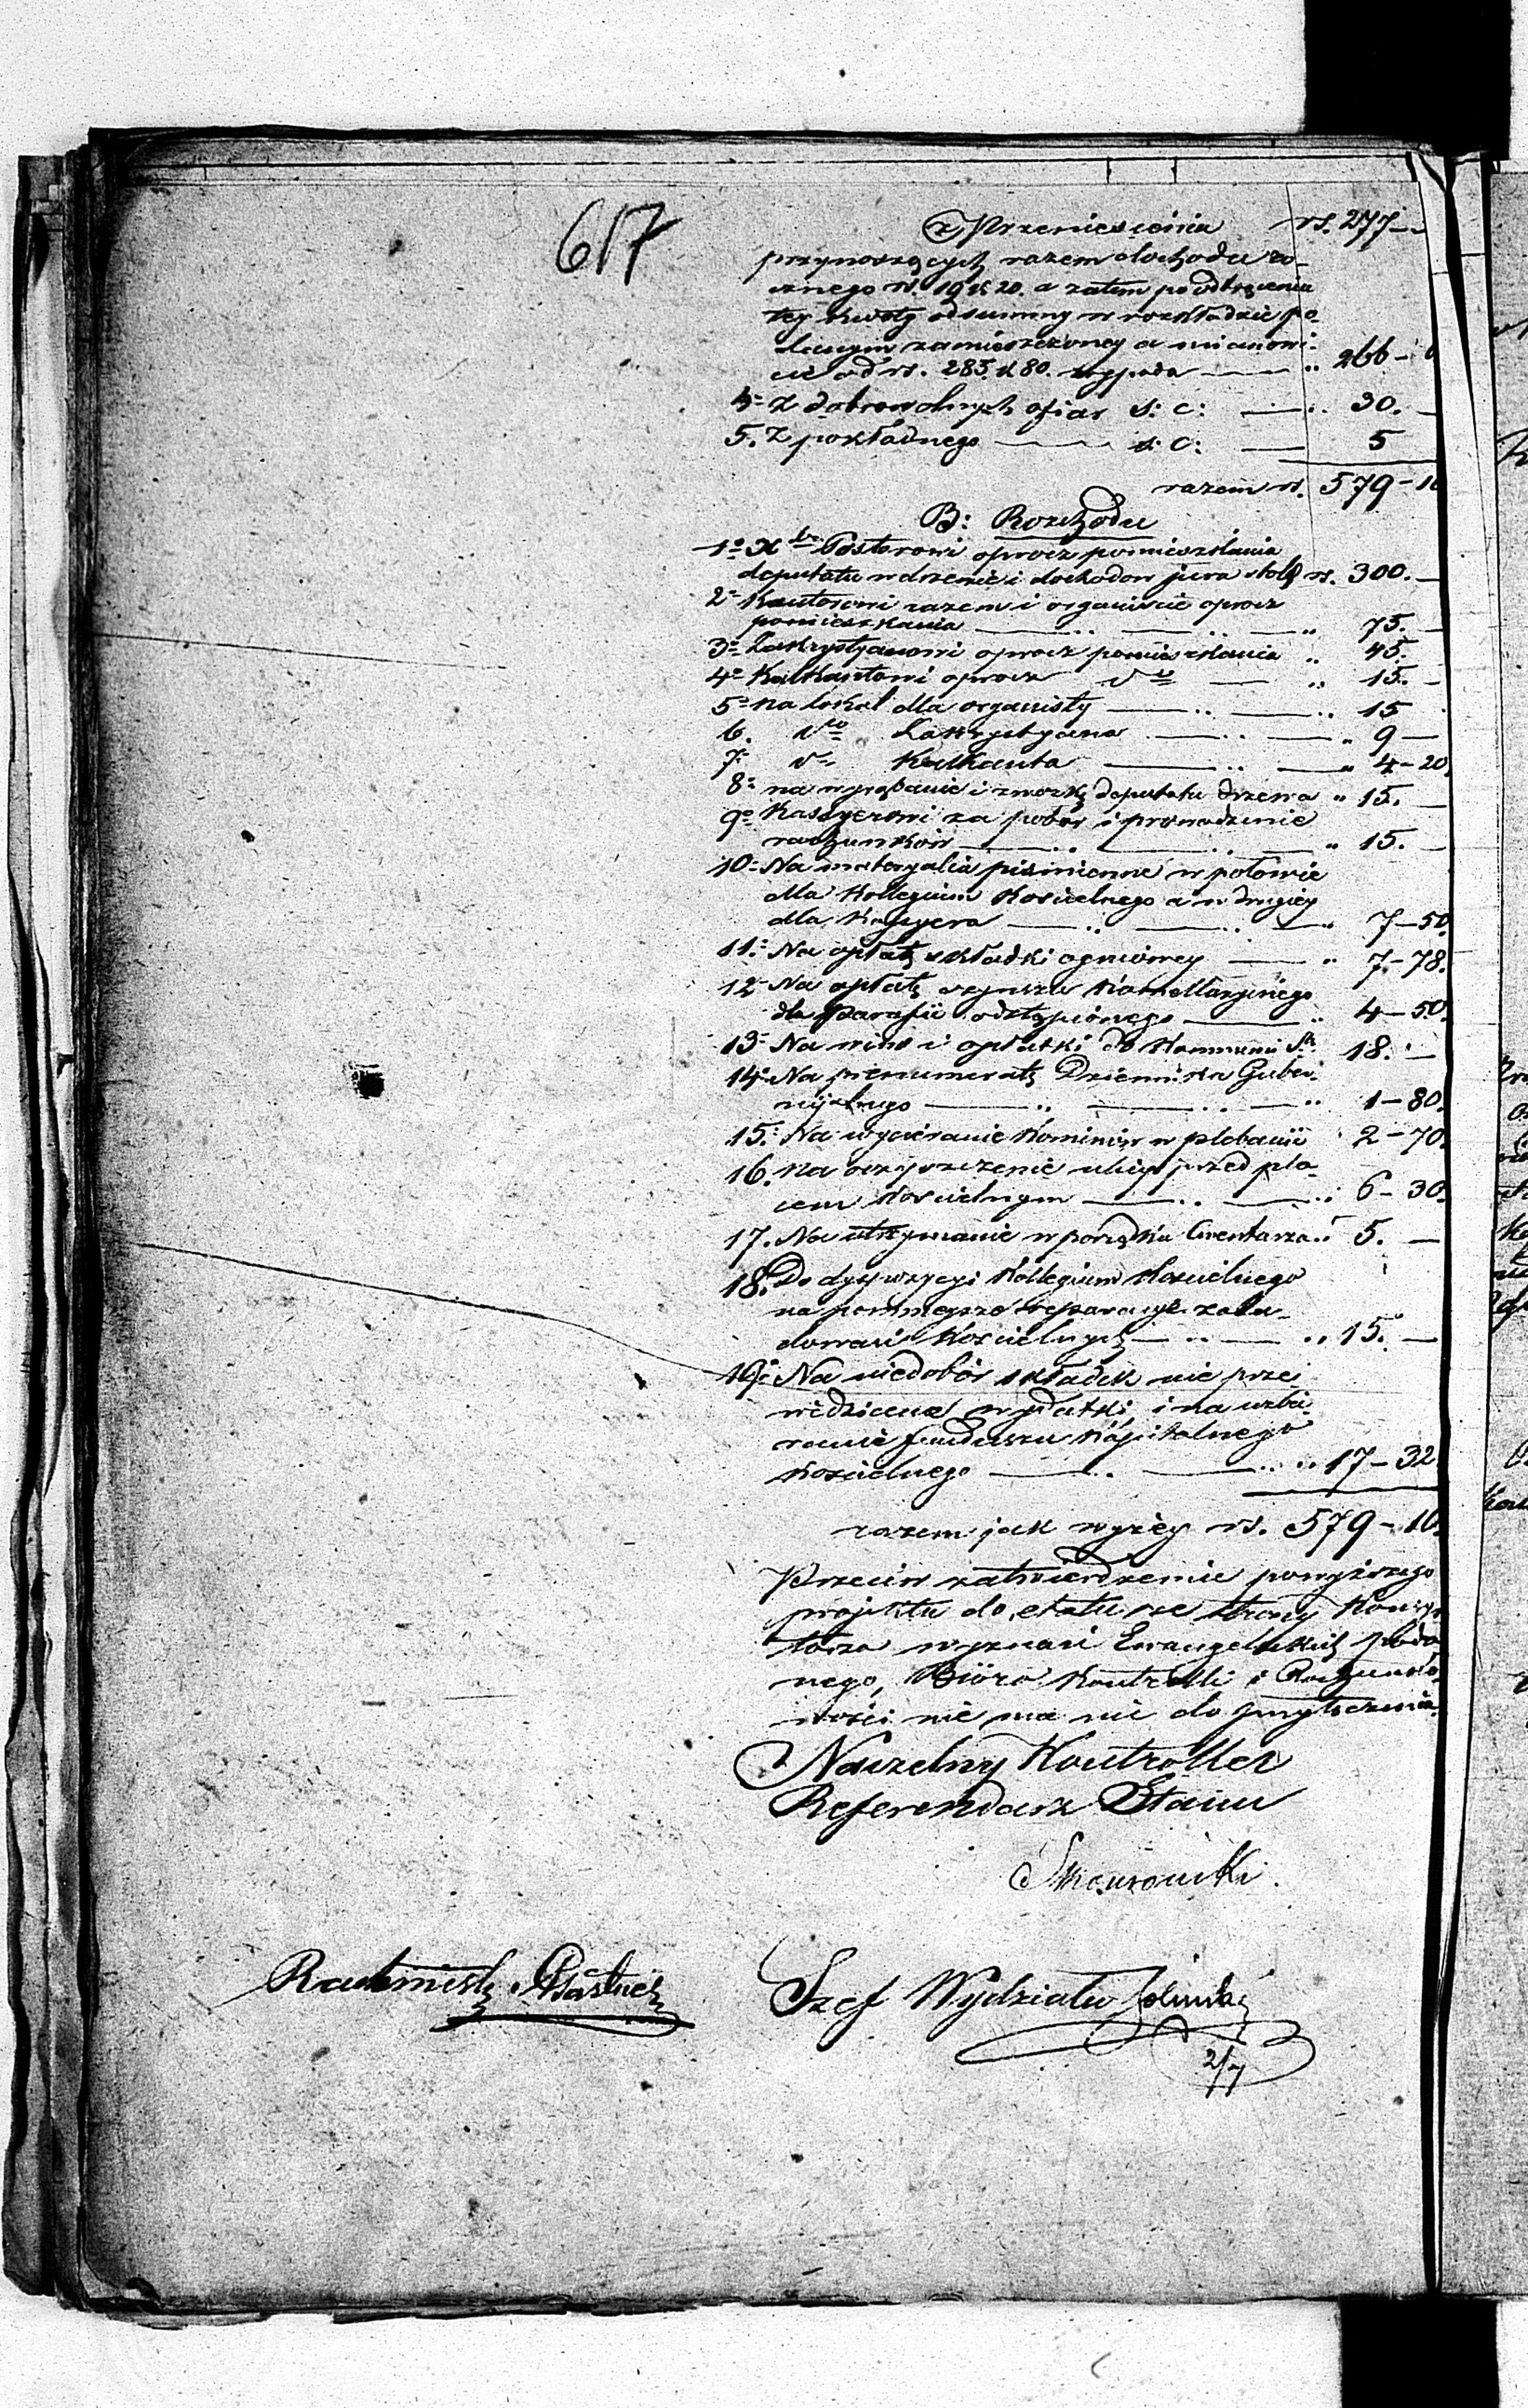 617
z Przeniesienia rs. 277 —
przynoszących razem dochodu ro-
cznego rs. 19 k 20. a zatem po odtrąceniu
tey kwoty od summy w rozkładzie po-
danym zamieszczoney a mianowi-
cie od rs. 285. k 80. wypada — „ 266 –
4. Z dobrowolnych ofiar s: c: — „ 30. —
5. Z pokładnego — s: c: — 5
razem rs. 579 – 10
B: Rozchodu
1. Xdzu Pastorowi oprocz pomieszkania
deputatu w drzewie i dochodow jura stolæ rs. 300. —
2. Kantorowi razem i organiście oprocz
pomieszkania — „ 75. —
3. Zakrystyanowi oprocz pomieszkania „ 45. —
4. Kalkantowi oprocz dto — „ 15. —
5. na lokal dla organisty — „ 15
6. dto Zakrystyana — „ 9 —
7. dto Kalkanta — „ 4 – 20
8. na wyrąbanie i zwózkę deputatu drzewa „ 15. —
9. Kassyerowi za pobór i prowadzenie
rachunków — „ 15. —
10. Na materyalia piśmienne w połowie
dla Kollegium Kościelnego a w drugiey
dla Kassyera — „ 7 – 50
11. Na opłatę składki ogniowey — „ 7 – 78.
12. Na opłatę czynszu
dla Parafii odstąpionego — „ 4 – 50.
13. Na wino i opłatki do Kommunii St. 18. —
14. Na prenumeratę Dziennika Guber-
nijalnego — „ 1 – 80.
15. Na wycieranie Kominów w plebanii 2 – 70.
16. na oczyszczenie ulicy przed pla-
cem Kościelnym — „ 6 – 30.
17. Na utrzymanie w porządku Cmentarza „ 5. —
18. Do dyspozycyi Kollegium Kościelnego
na pomnieysze reparacye zabu-
dowań Kościelnych — „ 15. —
19. Na niedobór składek nie prze-
widziane wydatki i na uzbie-
ranie funduszu Kapitalnego
Kościelnego — „ 17 – 32
razem jak wyżey rs. 579 – 10.
Przeciw zatwierdzenie powyższego
projektu do etatu ze strony Konsys-
torza wyznań Ewangelickich poda-
nego, Biuro Kontrolli i Rachunko-
wości nie ma nic do przytoczenia.
Naczelny Kontroller
Referendarz Stanu
Szef Wydziału
2/7